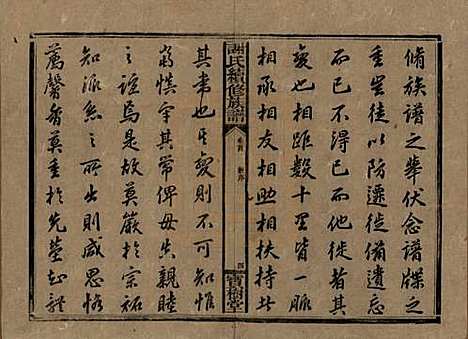 脩族譜之舉伏念譜牒之
重豈徒以防遷徙備遺忘
而已不得已而他徙者其
變也相距數十里皆一脈
相承相友相助相扶持此
謝氏續修族譜
卷首 新序
四
寶樹堂
其常也其變則不可知惟
將慎守其常俾毋失親睦
之誼焉是故莫嚴於宗祏
知派系之所出則咸思恪
薦馨香莫重於先塋知體